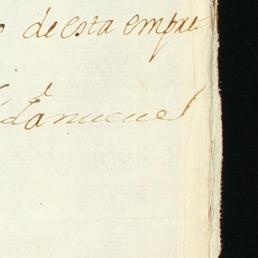 de esta empre-
Manuel